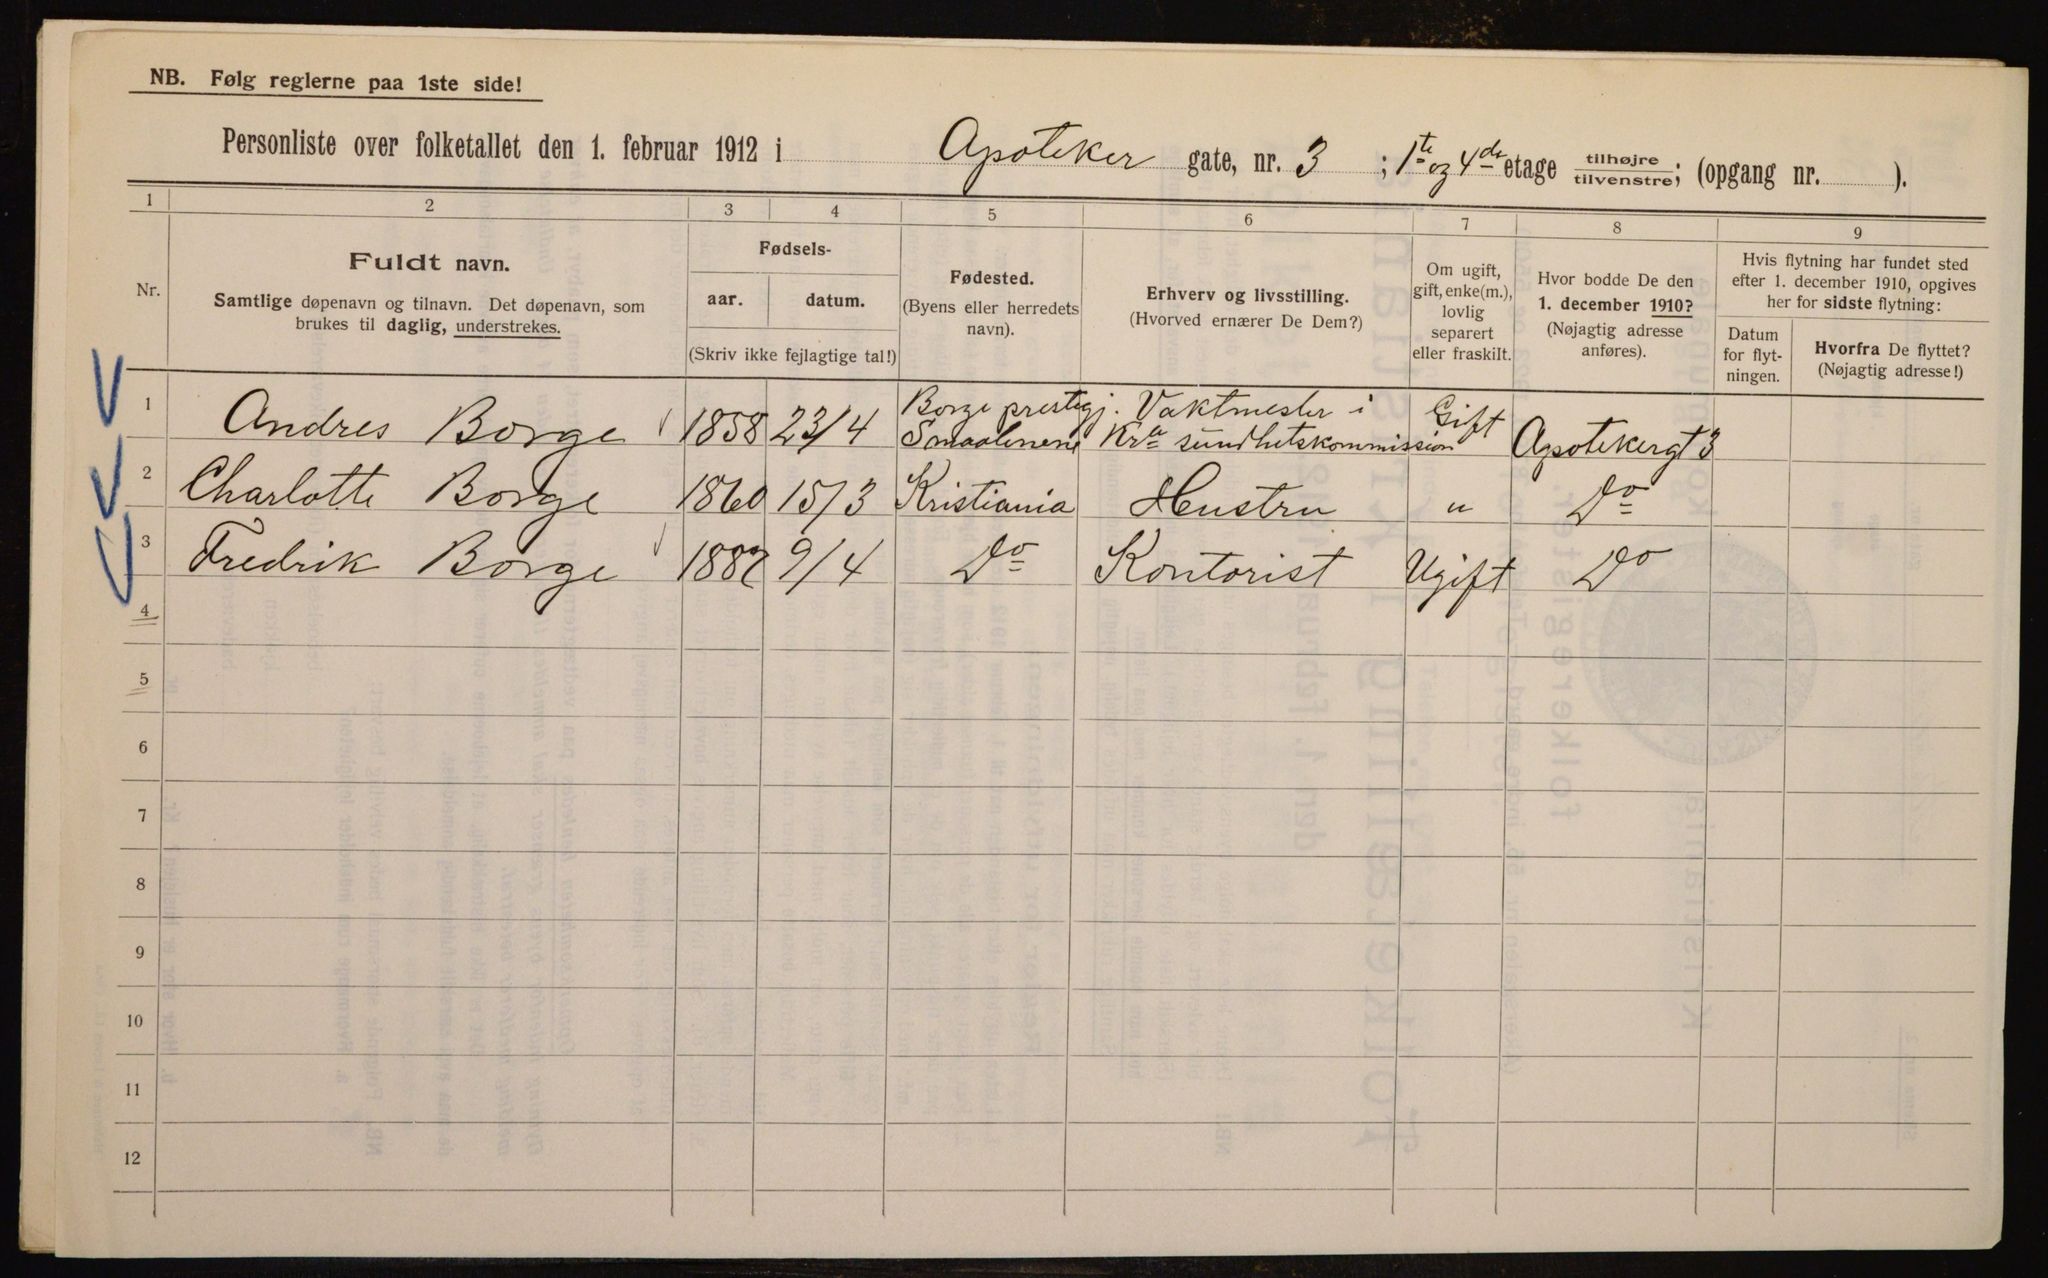 NB. Følg reglerne paa 1ste side!
Personliste over folketallet den 1. februar 1912 i Apoteker gate, nr. 3 ; 1ste og 4de etage tilhøjre / tilvenstre; (opgang nr. ).
1 2 3 4 5 6 7 8 9
Nr.
Fuldt navn.
Samtlige døpenavn og tilnavn. Det døpenavn, som
brukes til daglig, understrekes.
Fødsels-
aar. datum.
(Skriv ikke fejlagtige tal!)
Fødested.
(Byens eller herredets
navn).
Erhverv og livsstilling.
(Hvorved ernærer De Dem?)
Om ugift,
gift, enke(m.),
lovlig
separert
eller fraskilt.
Hvor bodde De den
1. december 1910?
(Nøjagtig adresse
anføres).
Hvis flytning har fundet sted
efter 1. december 1910, opgives
her for sidste flytning:
Datum
for flyt-
ningen.
Hvorfra De flyttet?
(Nøjagtig adresse!)
1 Andres Borge 1858 23/4 Borge prestegj. Smaalenene Vaktmester i Kra sundhetskommission Gift Apotekergt 3
2 Charlotte Borge 1860 15/3 Kristiania Hustru " Do
3 Fredrik Borge 9/4 Do Kontorist Ugift Do
4
5
6
7
8
9
10
11
12